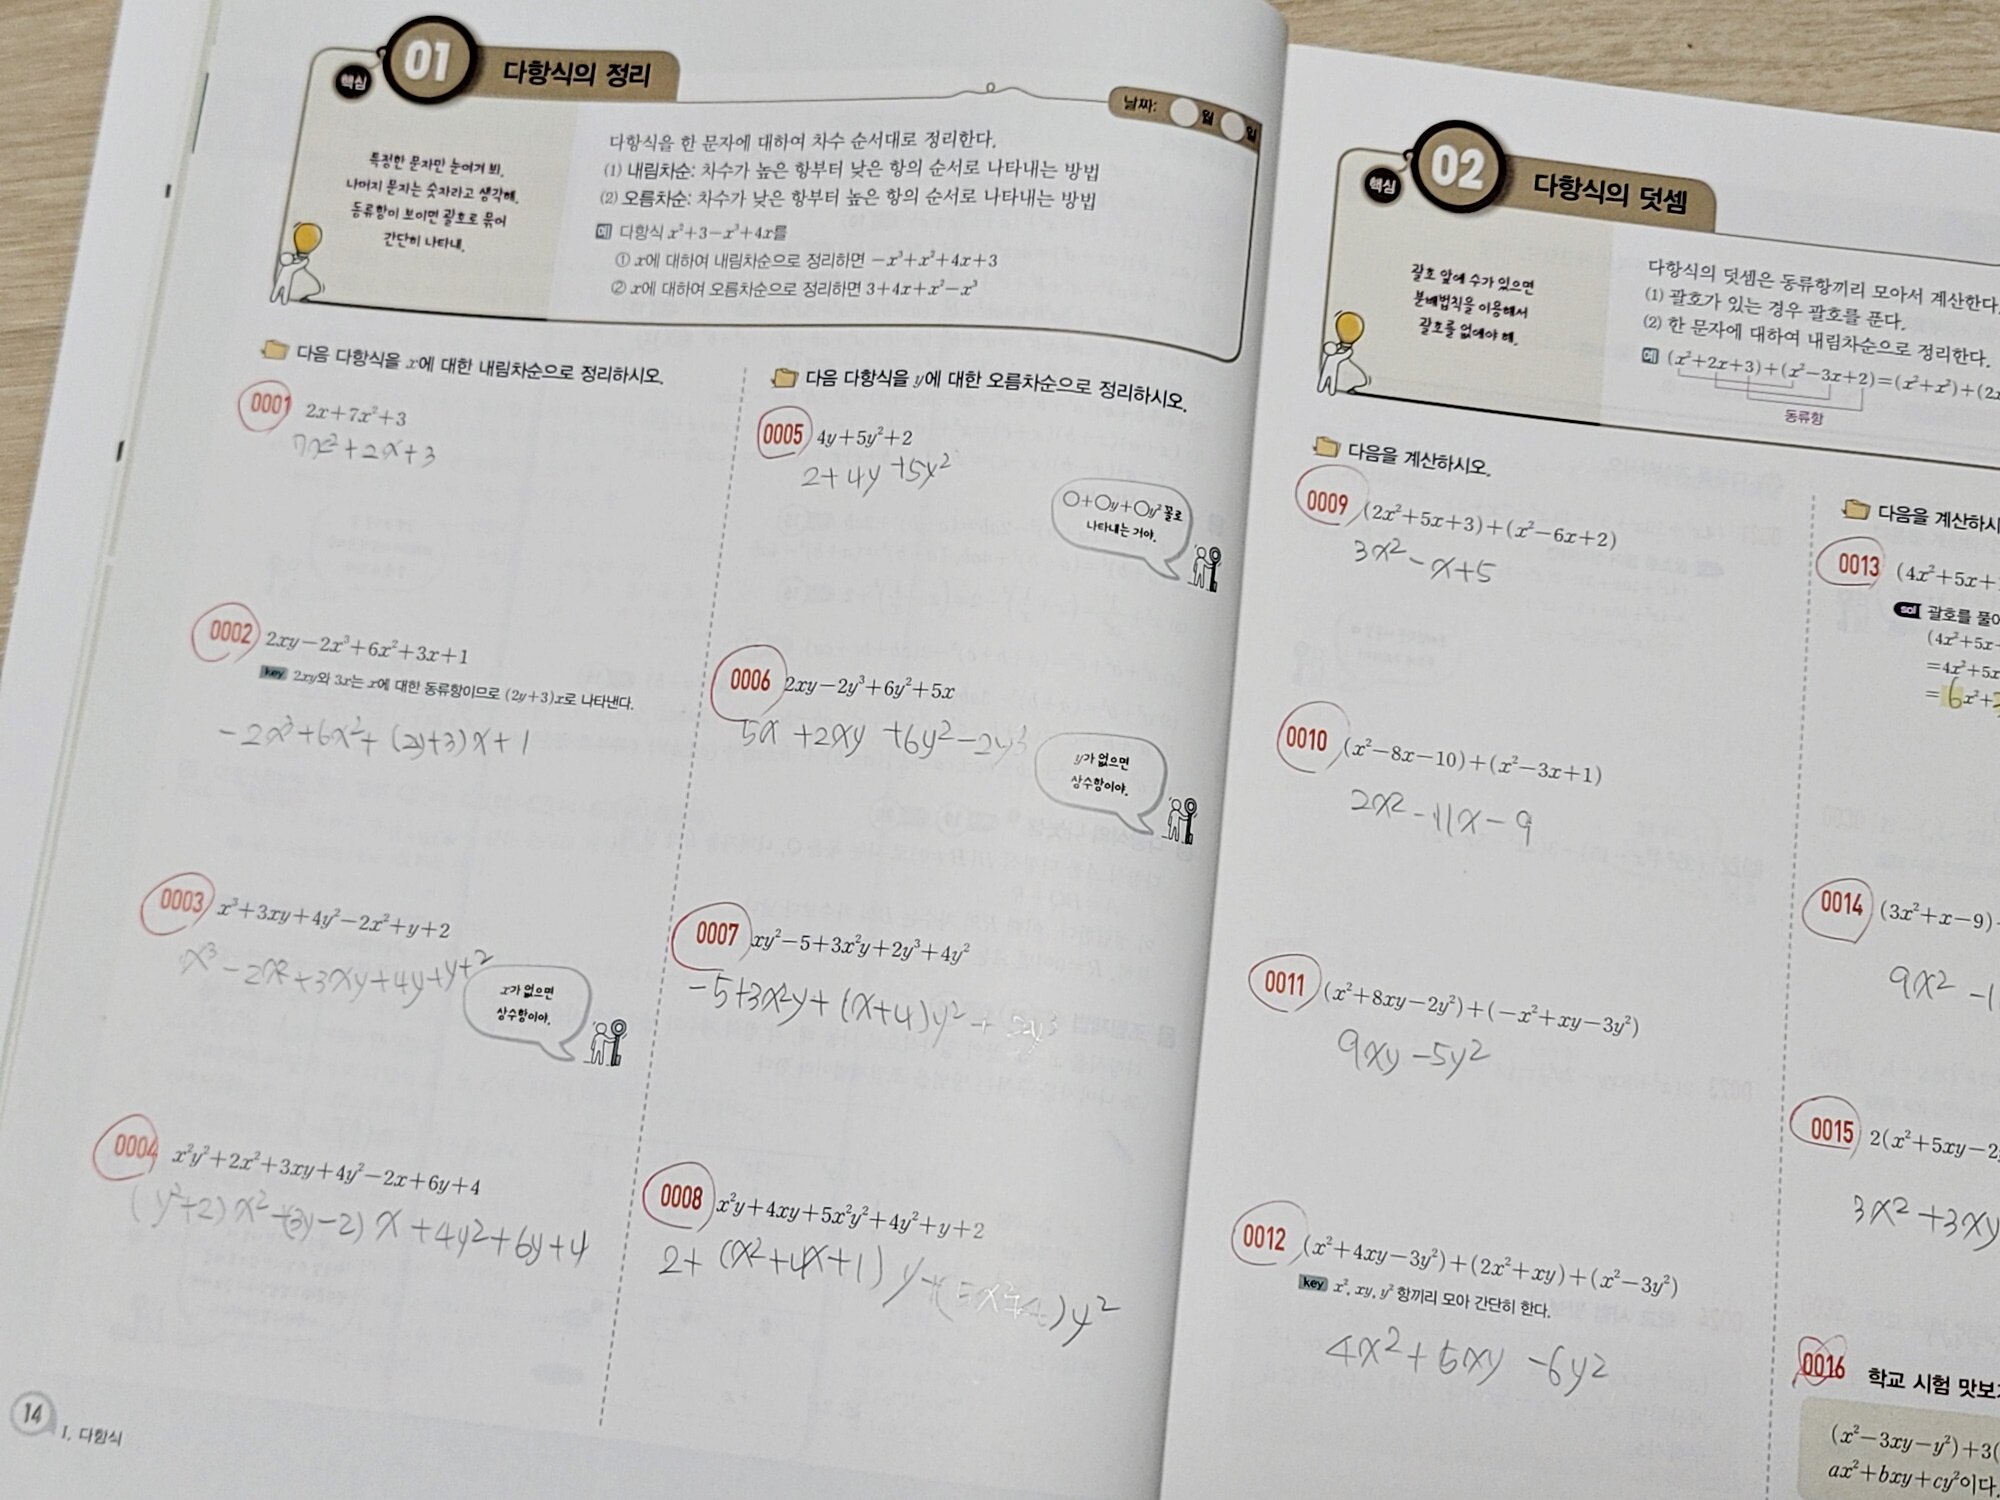 핵심 01 다항식의 정리
날짜: 월 일
특정한 문자만 눈여겨 봐.
나머지 문자는 숫자라고 생각해.
동류항이 보이면 괄호로 묶어
간단히 나타내.
다항식을 한 문자에 대하여 차수 순서대로 정리한다.
(1) 내림차순: 차수가 높은 항부터 낮은 항의 순서로 나타내는 방법
(2) 오름차순: 차수가 낮은 항부터 높은 항의 순서로 나타내는 방법
예 다항식 x²+3-x³+4x를
① x에 대하여 내림차순으로 정리하면 -x³+x²+4x+3
② x에 대하여 오름차순으로 정리하면 3+4x+x²-x³
다음 다항식을 x에 대한 내림차순으로 정리하시오.
0001 2x+7x²+3
7x²+2x+3
0002 2xy-2x³+6x²+3x+1
key 2xy와 3x는 x에 대한 동류항이므로 (2y+3)x로 나타낸다.
-2x³+6x²+(2y+3)x+1
0003 x³+3xy+4y²-2x²+y+2
x³-2x²+3xy+4y+y+2
x가 없으면
상수항이야.
0004 x²y²+2x²+3xy+4y²-2x+6y+4
(y²+2)x²+(3y-2)x+4y²+6y+4
다음 다항식을 y에 대한 오름차순으로 정리하시오.
0005 4y+5y²+2
2+4y+5y²
○+○y+○y² 꼴로
나타내는 거야.
0006 2xy-2y³+6y²+5x
5x+2xy+6y²-2y³
y가 없으면
상수항이야.
0007 xy²-5+3x²y+2y³+4y²
-5+3x²y+(x+4)y²+2y³
0008 x²y+4xy+5x²y²+4y²+y+2
2+(x²+4x+1)y+(5x²+4)y²
14 I. 다항식
핵심 02 다항식의 덧셈
괄호 앞에 수가 있으면
분배법칙을 이용해서
괄호를 없애야 해.
다항식의 덧셈은 동류항끼리 모아서 계산한다.
(1) 괄호가 있는 경우 괄호를 푼다.
(2) 한 문자에 대하여 내림차순으로 정리한다.
예 (x²+2x+3)+(x²-3x+2)=(x²+x²)+(2x
동류항
다음을 계산하시오.
0009 (2x²+5x+3)+(x²-6x+2)
3x²-x+5
0010 (x²-8x-10)+(x²-3x+1)
2x²-11x-9
0011 (x²+8xy-2y²)+(-x²+xy-3y²)
9xy-5y²
0012 (x²+4xy-3y²)+(2x²+xy)+(x²-3y²)
key x², xy, y² 항끼리 모아 간단히 한다.
4x²+5xy-6y²
다음을 계산하시
0013 (4x²+5x+
sol 괄호를 풀어
(4x²+5x-
=4x²+5x
=6x²+
0014 (3x²+x-9)
9x²-1
0015 2(x²+5xy-2
3x²+3xy
0016 학교 시험 맛보기
(x²-3xy-y²)+3(
ax²+bxy+cy²이다.